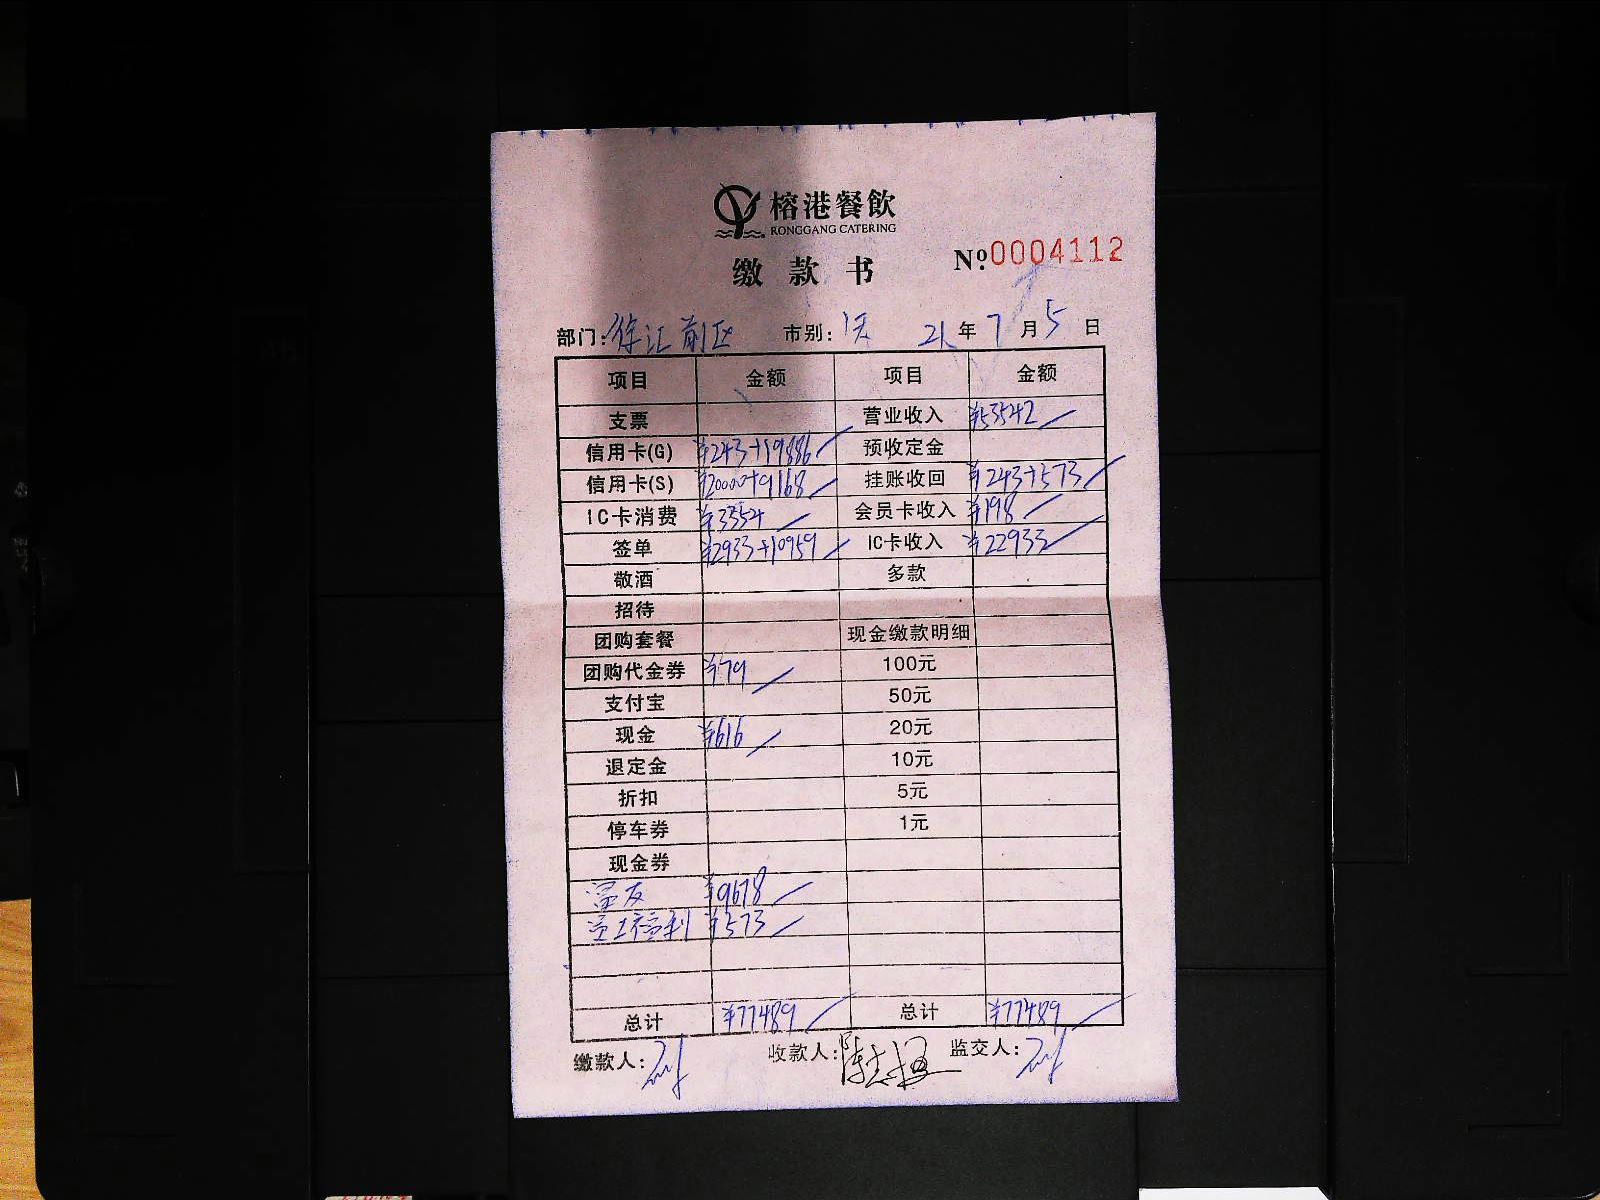 榕港餐飲
RONGGANG CATERING
缴款书
№0004112
部门:徐汇前区 市别: 21年7月5日
项目 金额 项目 金额
支票 营业收入 ¥53542
信用卡(G) ¥243+19886 预收定金
信用卡(S) ¥20000+9168 挂账收回 ¥243+573
IC卡消费 ¥3354 会员卡收入 ¥198
签单 ¥2933+10959 IC卡收入 ¥22933
敬酒 多款
招待
团购套餐 现金缴款明细
团购代金券 ¥79 100元
支付宝 50元
现金 ¥616 20元
退定金 10元
折扣 5元
停车券 1元
现金券
¥9678
员工福利 ¥573
总计 ¥77489 总计 ¥77489
缴款人: 收款人: 监交人: